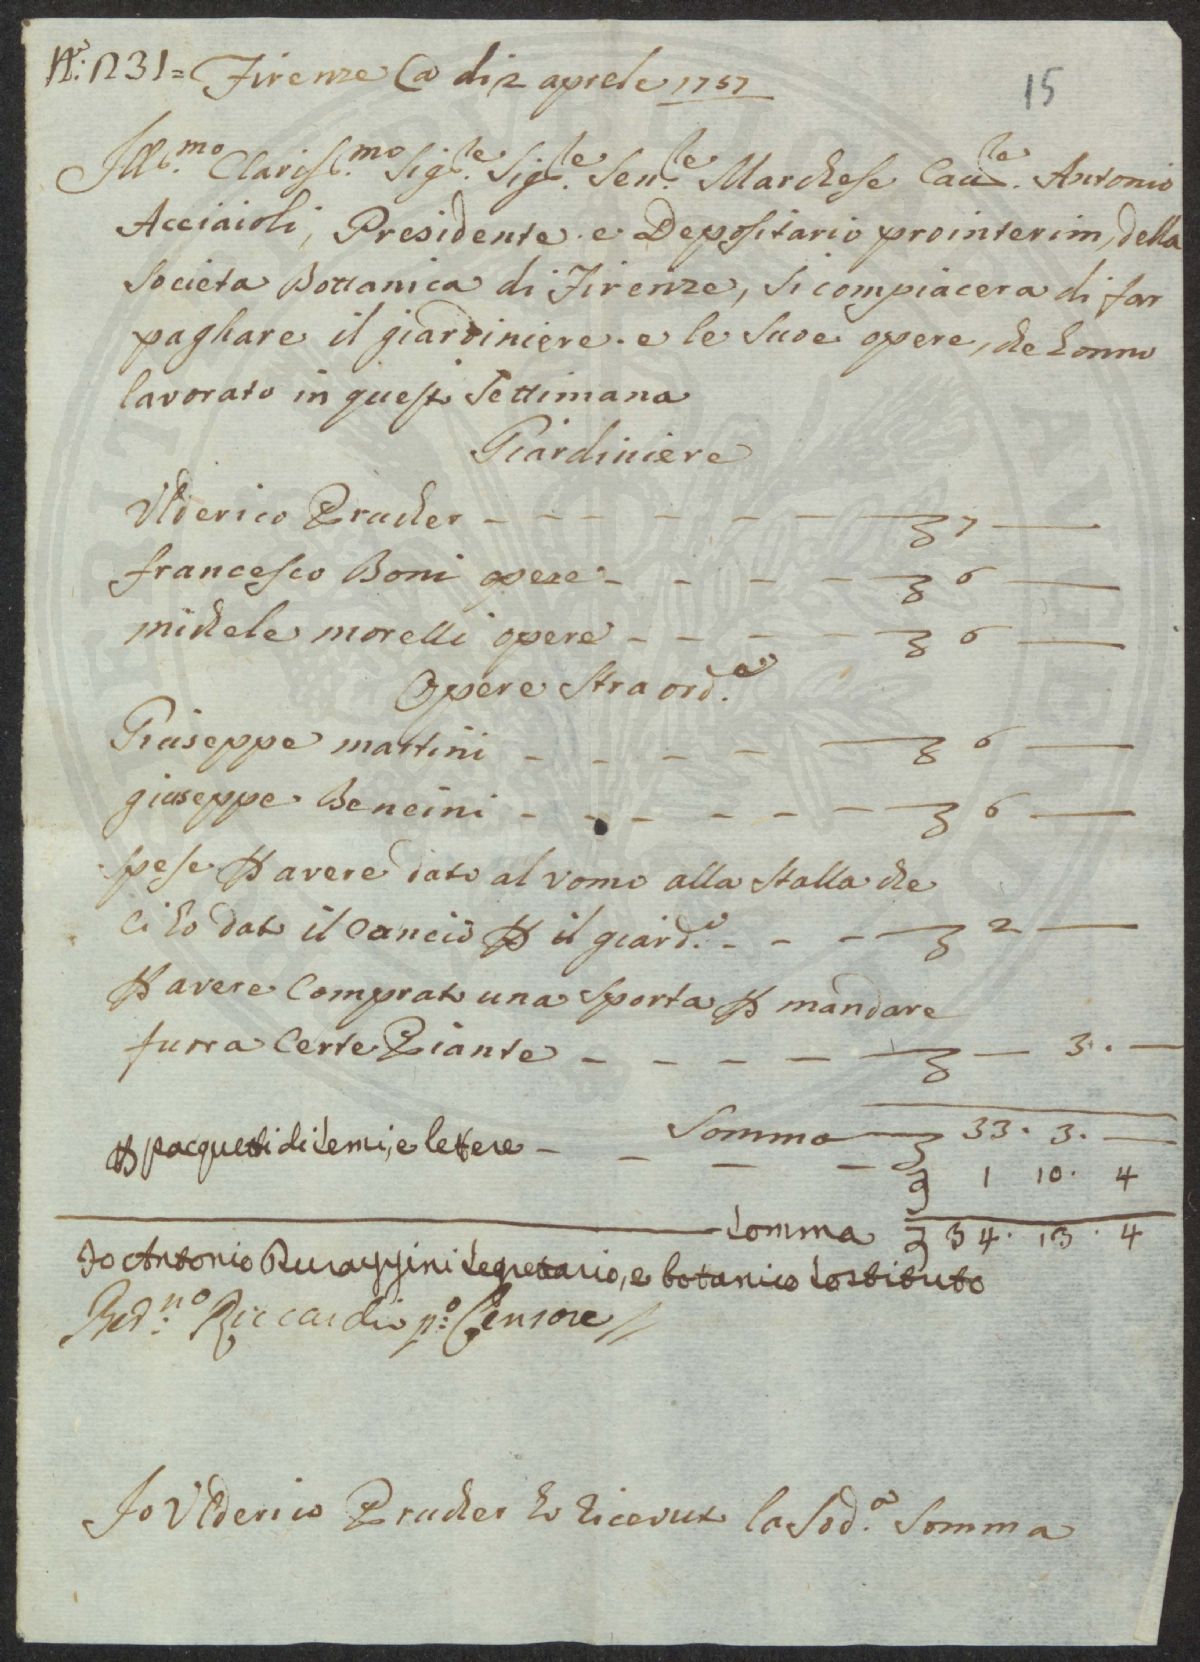 N.º 1231 = Firenze @ di 2 aprele 1757
15
Ill.mo Clariss.mo Sig.re Sig.re Sen.re Marchese Cau.re Antonio
Acciaioli, Presidente e Depositario prointerim, della
Societa Bottanica di Firenze, si compiacera di far
paghare il giardiniere e le sue opere, che hanno
lavorato in questa Settimana
Giardiniere
Ulderico Prucher - - - - - - 7 —
francesco Boni opere - - - - 6 —
michele morelli opere - - - - 6 —
Opere Straord.e
Giuseppe martini - - - - 6 —
giuseppe Bencini - - - - - - 6 —
spese p avere dato al uomo alla stalla che
ci ho dato il Concio p il giard.o - - - 2 —
p avere Comprato una Sporta p mandare
fuora Certe Piante - - - - — 3. —
Somma 33. 3. —
p pacquetti di semi, e lettere - - - - 1 10. 4
Somma 34. 13. 4
Io Antonio Durazzini Segretario, e botanico Sostituto
Bed.no Riccardi p.º Censore
Io Ulderico Prucher ho riceuto la Sod.a Somma